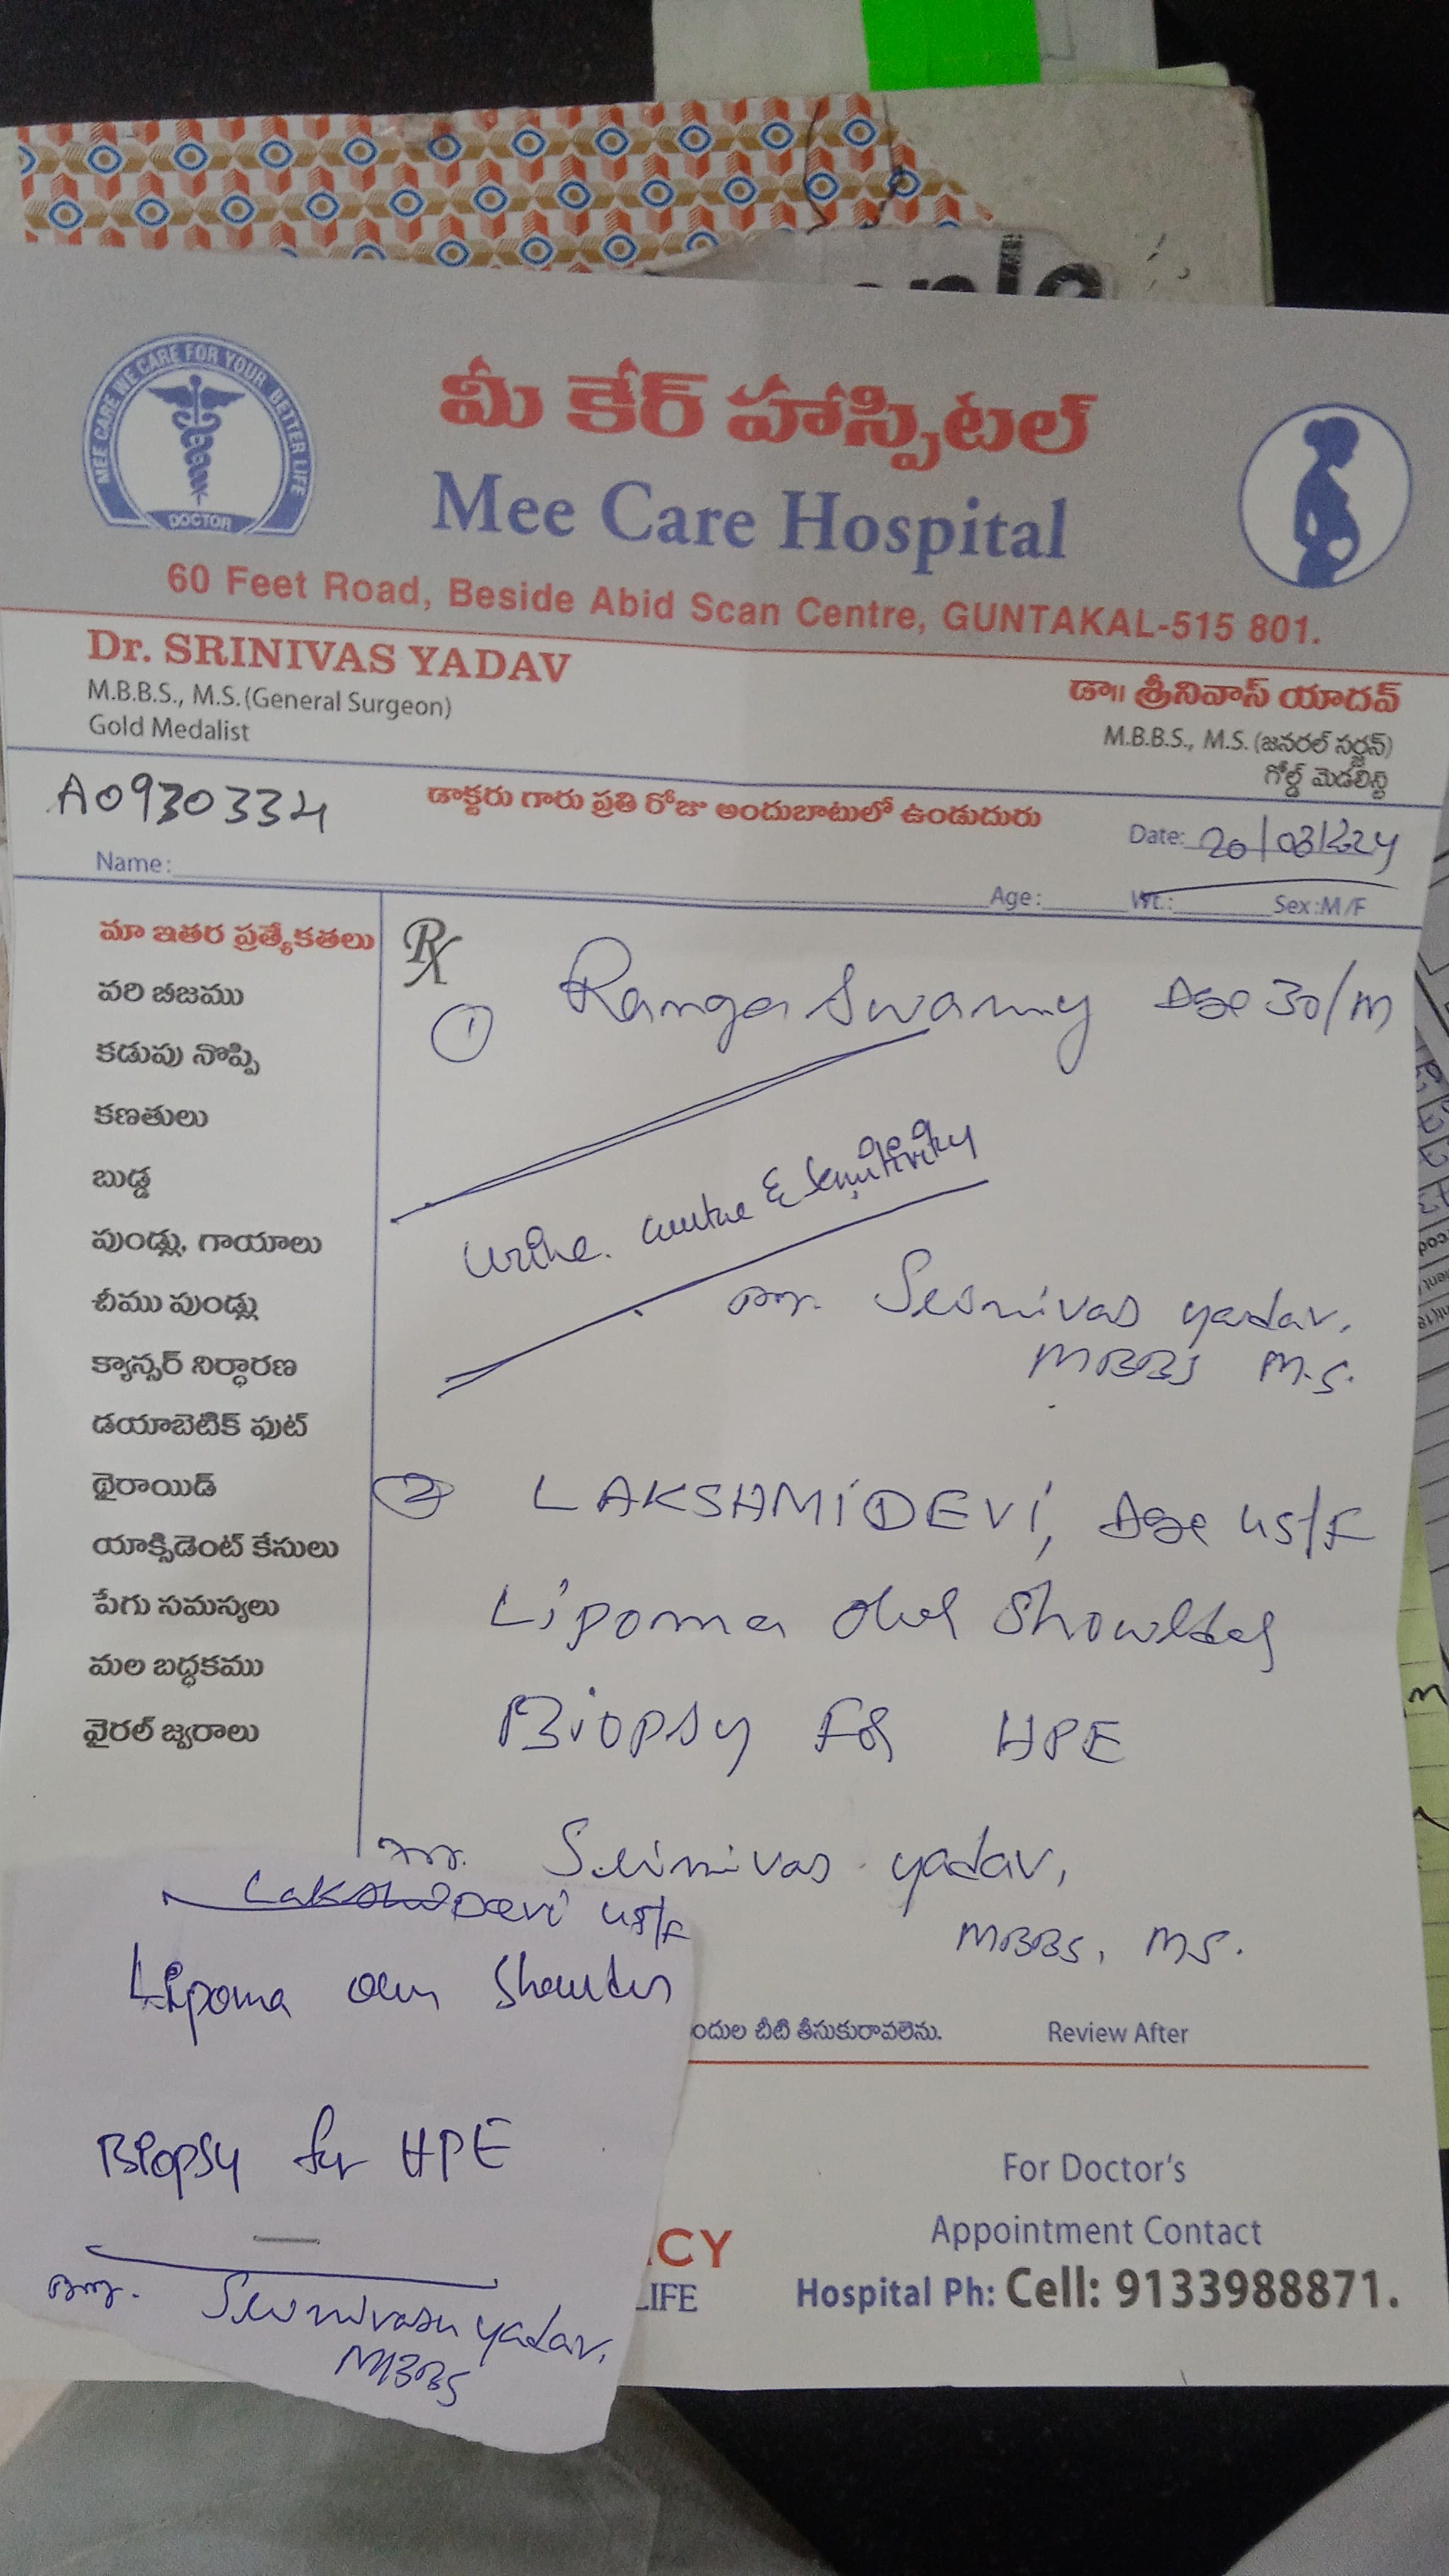 MEE CARE WE CARE FOR YOUR BETTER LIFE
DOCTOR
మీ కేర్ హాస్పిటల్
Mee Care Hospital
60 Feet Road, Beside Abid Scan Centre, GUNTAKAL-515 801.
Dr. SRINIVAS YADAV
M.B.B.S., M.S. (General Surgeon)
Gold Medalist
డా॥ శ్రీనివాస్ యాదవ్
M.B.B.S., M.S. (జనరల్ సర్జన్)
గోల్డ్ మెడలిస్ట్
A0930334
డాక్టరు గారు ప్రతి రోజు అందుబాటులో ఉండుదురు
Date: 20/03/2024
Name: Age: Wt.: Sex:M/F
మా ఇతర ప్రత్యేకతలు
వరి బీజము
కడుపు నొప్పి
కణతులు
బుడ్డ
పుండ్లు, గాయాలు
చీము పుండ్లు
క్యాన్సర్ నిర్ధారణ
డయాబెటిక్ ఫుట్
థైరాయిడ్
యాక్సిడెంట్ కేసులు
పేగు సమస్యలు
మల బద్ధకము
వైరల్ జ్వరాలు
Rx
① Ranga Swamy Age 30/M
Urine. Culture & Sensitivity
Dr. Srinivas Yadav.
MBBS M.S.
② LAKSHMIDEVI, Age 45/F
Lipoma over Shoulder
Biopsy For HPE
Dr. Srinivas Yadav,
MBBS, MS.
LakshmiDevi 45/F
Lipoma over Shoulder
Biopsy for HPE
Dr. Srinivasu Yadav.
MBBS
ందుల చీటి తీసుకురావలెను. Review After
CY
LIFE
For Doctor's
Appointment Contact
Hospital Ph: Cell: 9133988871.